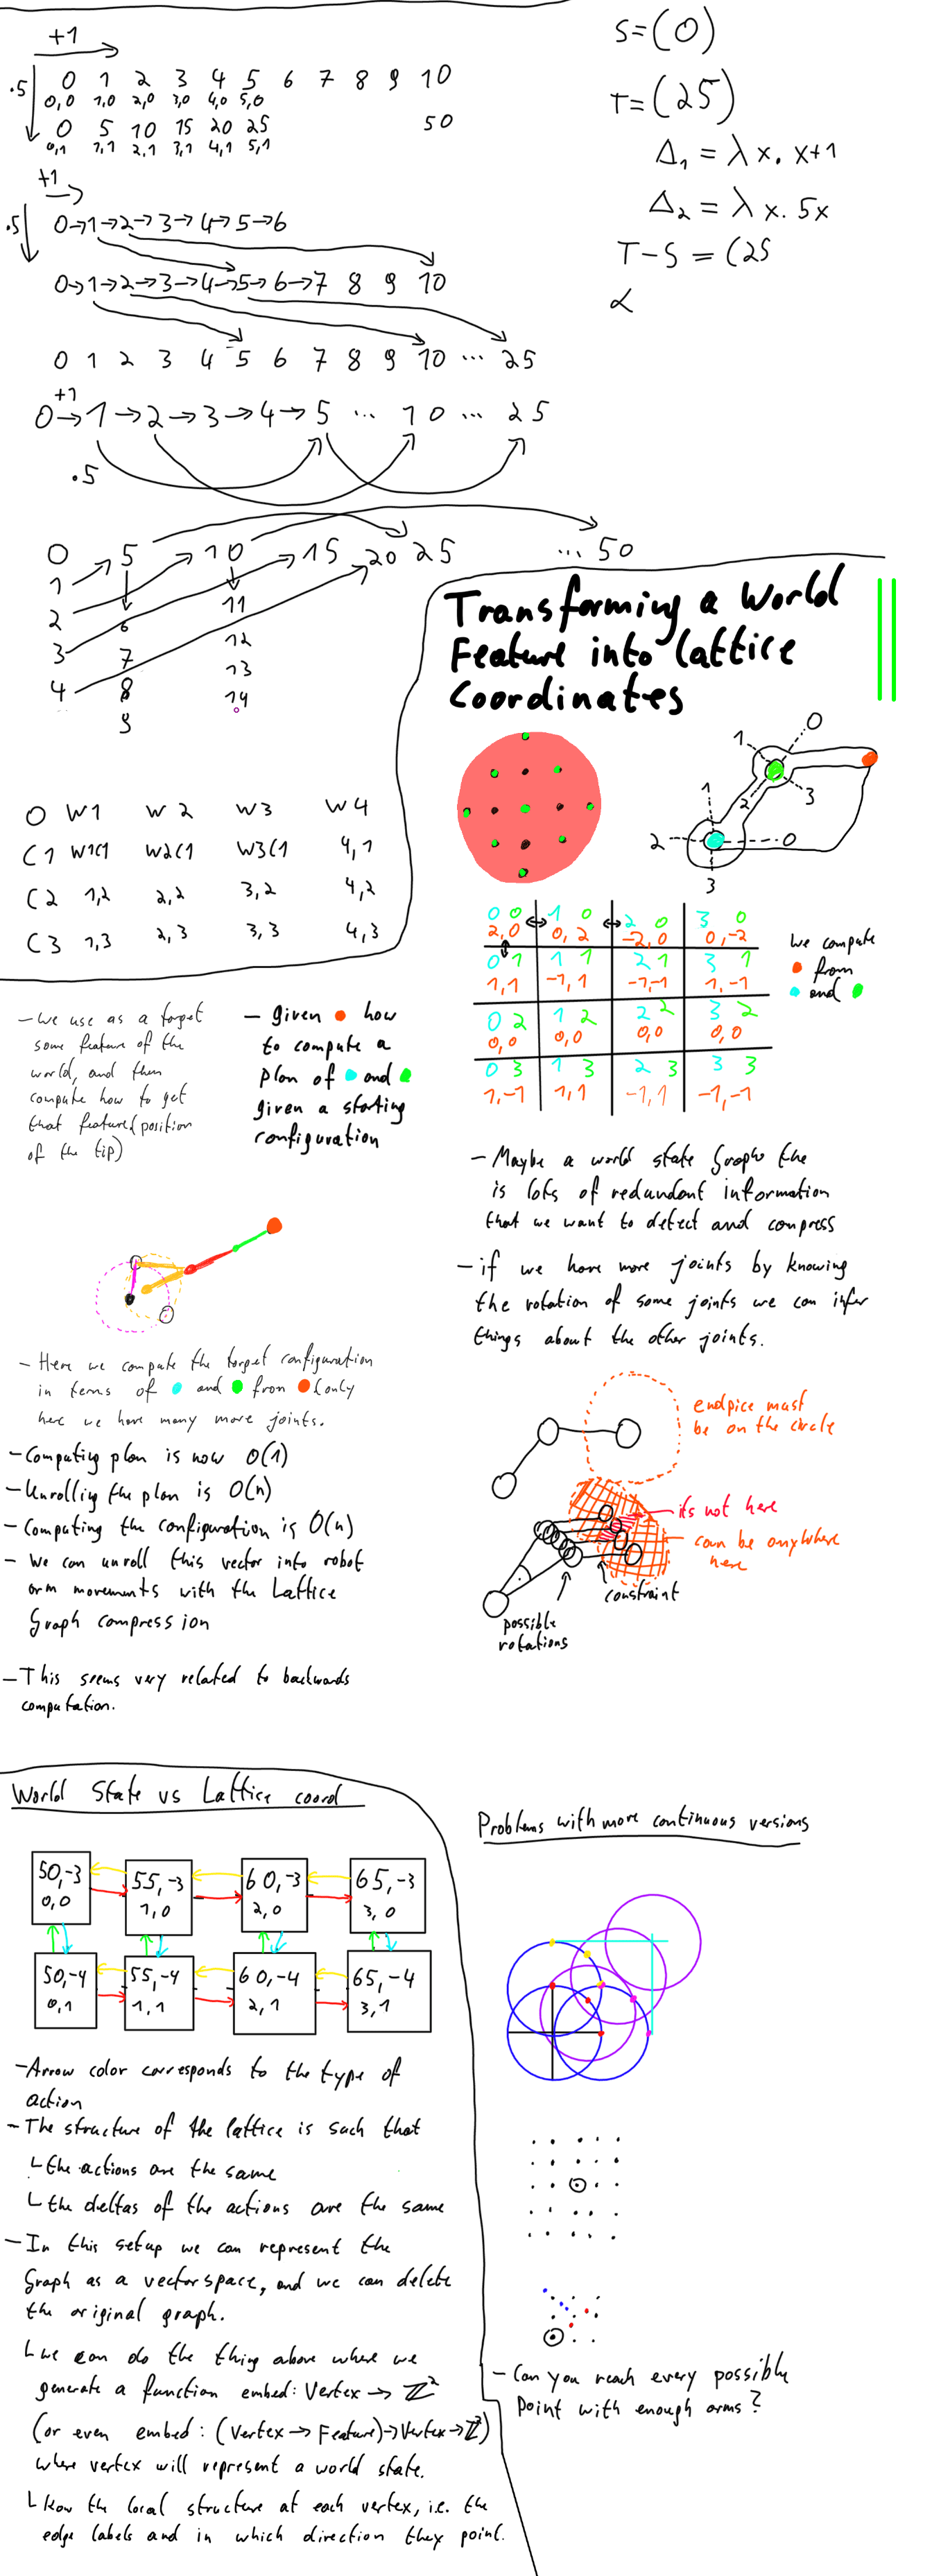 +1
.5
0 1 2 3 4 5 6 7 8 9 10
0,0 1,0 2,0 3,0 4,0 5,0
0 5 10 15 20 25 50
0,1 1,1 2,1 3,1 4,1 5,1
S=(0)
T=(25)
Δ₁ = λx. x+1
Δ₂ = λx. 5x
T-S = (25
α
+1
.5
0→1→2→3→4→5→6
0→1→2→3→4→5→6→7 8 9 10
0 1 2 3 4 5 6 7 8 9 10 ... 25
+1
0→1→2→3→4→5 ... 10 ... 25
.5
0 5 10 15 20 25 ... 50
1
2 6 11
3 7 12
4 8 13
9 14
0 W1 W2 W3 W4
C1 W1C1 W2C1 W3C1 4,1
C2 1,2 2,2 3,2 4,2
C3 1,3 2,3 3,3 4,3
Transforming a World
Feature into Lattice
Coordinates
0
1
3
2
1
2 0
3
0 0 1 0 2 0 3 0
2,0 0,2 -2,0 0,-2
0 1 1 1 2 1 3 1
1,1 -1,1 -1,-1 1,-1
0 2 1 2 2 2 3 2
0,0 0,0 0,0 0,0
0 3 1 3 2 3 3 3
1,-1 1,1 -1,1 -1,-1
we compute
from
and
- We use as a target
some feature of the
world, and then
compute how to get
that feature (position
of the tip)
- given how
to compute a
plan of and
given a starting
configuration
- Maybe a world state Graph the
is lots of redundant information
that we want to detect and compress
- if we have more joints by knowing
the rotation of some joints we can infer
things about the other joints.
- Here we compute the target configuration
in terms of and from (only
here we have many more joints.
- Computing plan is now O(1)
- Unrolling the plan is O(n)
- Computing the configuration is O(n)
- We can unroll this vector into robot
arm movements with the Lattice
Graph compression
- This seems very related to backwards
computation.
endpice must
be on the circle
its not here
can be anywhere
here
constraint
possible
rotations
World State vs Lattice coord
50,-3 55,-3 60,-3 65,-3
0,0 1,0 2,0 3,0
50,-4 55,-4 60,-4 65,-4
0,1 1,1 2,1 3,1
- Arrow color corresponds to the type of
action
- The structure of the lattice is such that
the actions are the same
the deltas of the actions are the same
- In this setup we can represent the
Graph as a vectorspace, and we can delete
the original graph.
we can do the thing above where we
generate a function embed: Vertex → ℤ²
(or even embed: (Vertex → Feature) → Vertex → ℤ²)
where vertex will represent a world state.
the local structure at each vertex, i.e. the
edge labels and in which direction they point.
Problems with more continuous versions
- Can you reach every possible
point with enough arms?